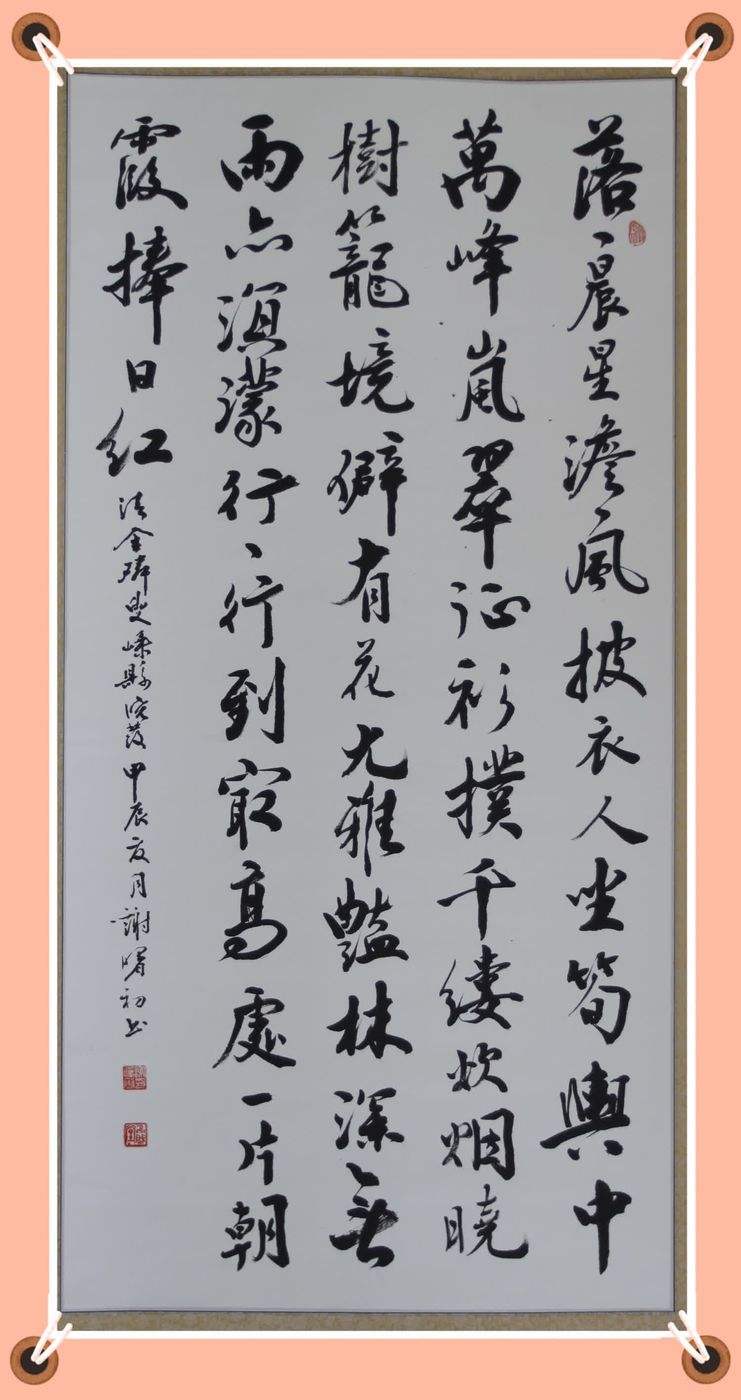 落丶晨星澹丶風披衣人坐筍輿中
萬峰嵐翠征衫撲千縷炊烟曉
樹籠境僻有花尤雅豔林深無
雨亦溟濛行丶行到最高處一片朝
霞捧日紅
清金璘叟嵊縣曉發甲辰夏月謝曙初书